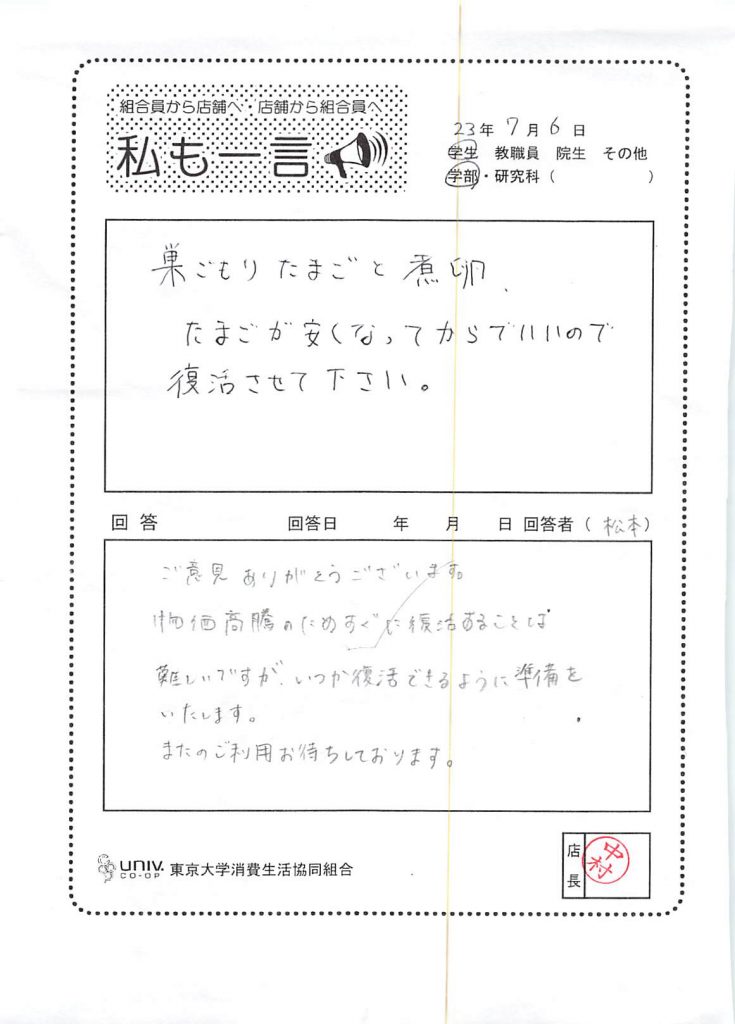 組合員から店舗へ・店舗から組合員へ
私も一言
23年 7月 6日
学生 教職員 院生 その他
学部・研究科（ ）
巣ごもりたまごと煮卵、
たまごが安くなってからでいいので
復活させて下さい。
回答 回答日 年 月 日 回答者（松本）
ご意見ありがとうございます。
物価高騰のためすぐに復活することは
難しいですが、いつか復活できるように準備を
いたします。
またのご利用お待ちしております。
UNIV. CO-OP 東京大学消費生活協同組合
店長 中村